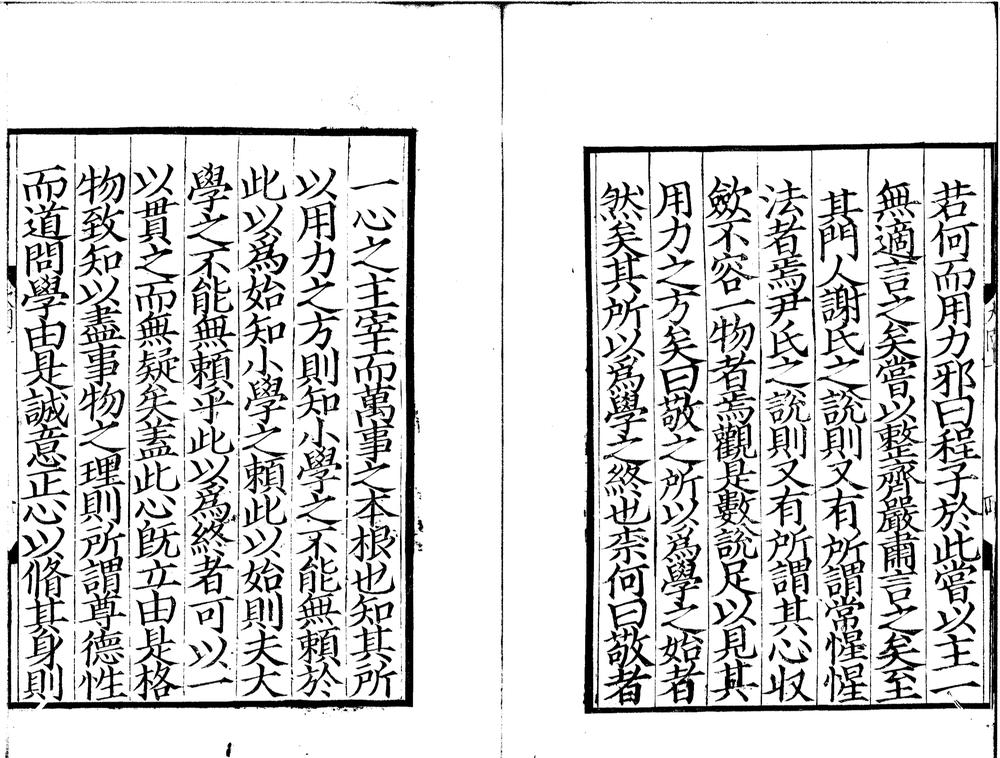 若何而用力邪曰程子於此嘗以主一
無適言之矣嘗以整齊嚴肅言之矣至
其門人謝氏之說則又有所謂常惺惺
法者焉尹氏之說則又有所謂其心収
斂不容一物者焉觀是數說足以見其
用力之方矣曰敬之所以爲學之始者
然矣其所以爲學之終也柰何曰敬者
一心之主宰而萬事之本根也知其所
以用力之方則知小學之不能無賴於
此以爲始知小學之賴此以始則夫大
學之不能無賴乎此以爲終者可以一
以貫之而無疑矣盖此心旣立由是格
物致知以盡事物之理則所謂尊德性
而道問學由是誠意正心以脩其身則